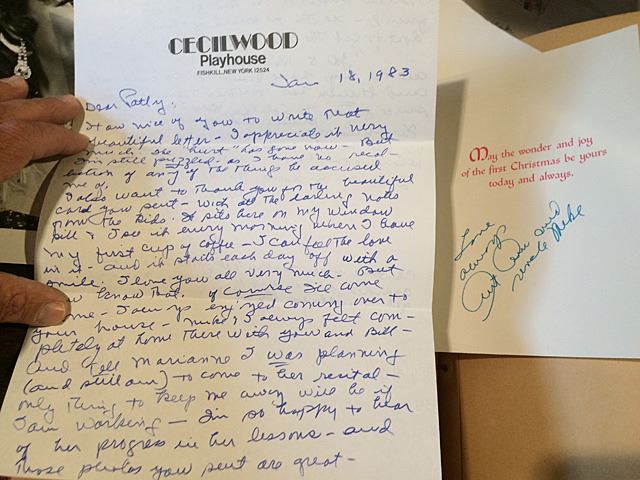 CECILWOOD
Playhouse
FISHKILL, NEW YORK 12524
Jan 18, 1983
Dear Patty,
How nice of you to write that
beautiful letter - I appreciate it very
much. The "hurt" has gone now - But
I'm still puzzled - as I have no recol-
lection of any of the things he accused
me of.
I also want to thank you for the beautiful
card you sent - with all the darling notes
from the kids. It sits here on my window
sill & I see it every morning when I have
my first cup of coffee - I can feel the love
in it - and it starts each day off with a
smile. I love you all very much - But
you know that. Of course I'll come
- I always enjoyed coming over to
your house - Mike & I always felt com-
pletely at home there with you and Bill -
and tell Marianne I was planning
(and still am) to come to her recital -
only thing to keep me away will be if
I am working - I'm so happy to hear
of her progress in her lessons - and
those photos you sent are great -
May the wonder and joy
of the first Christmas be yours
today and always.
Love
always
Aunt and
Uncle Mike